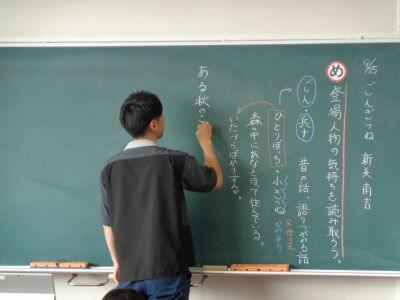 9/25 ごんぎつね 新美南吉
め 登場人物の気持ちを読み取ろう。
ごん・兵十 昔の話、語りつがれる話
ひとりぼっち・小ぎつね
森の中にあなをほって住んでいる。
いたずらばかりする。
ある秋のこ